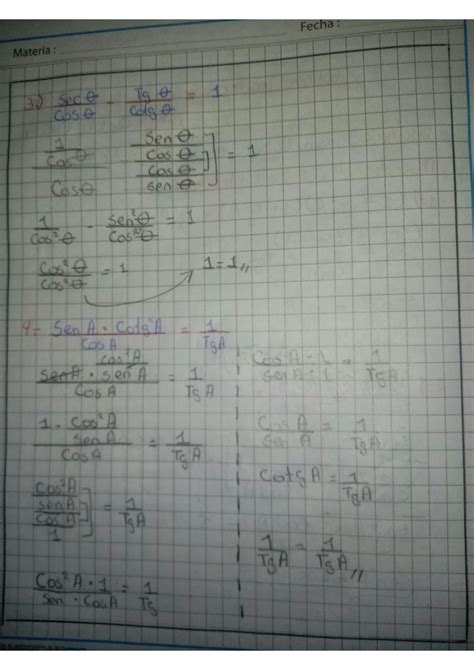 Fecha :
Materia :
3.) Sec θ / Cos θ - Tg θ / Cotg θ = 1
1 / Cos θ / Cos θ   Sen θ / Cos θ / Cos θ / sen θ ] = 1
1 / Cos² θ - Sen² θ / Cos² θ = 1
Cos² θ / Cos² θ = 1   1 = 1,,
4- Sen A · Cotg² A / Cos A = 1 / Tg A
SenA · cos² A / sen² A / Cos A = 1 / Tg A
1 · Cos² A / Sen A / Cos A = 1 / Tg A
Cos² A / Sen A / Cos A / 1 ] = 1 / Tg A
Cos² A · 1 / Sen · Cos A = 1 / Tg
Cos A · 1 / Sen A · 1 = 1 / Tg A
Cos A / Sen A = 1 / Tg A
Cotg A = 1 / Tg A
1 / Tg A = 1 / Tg A,,